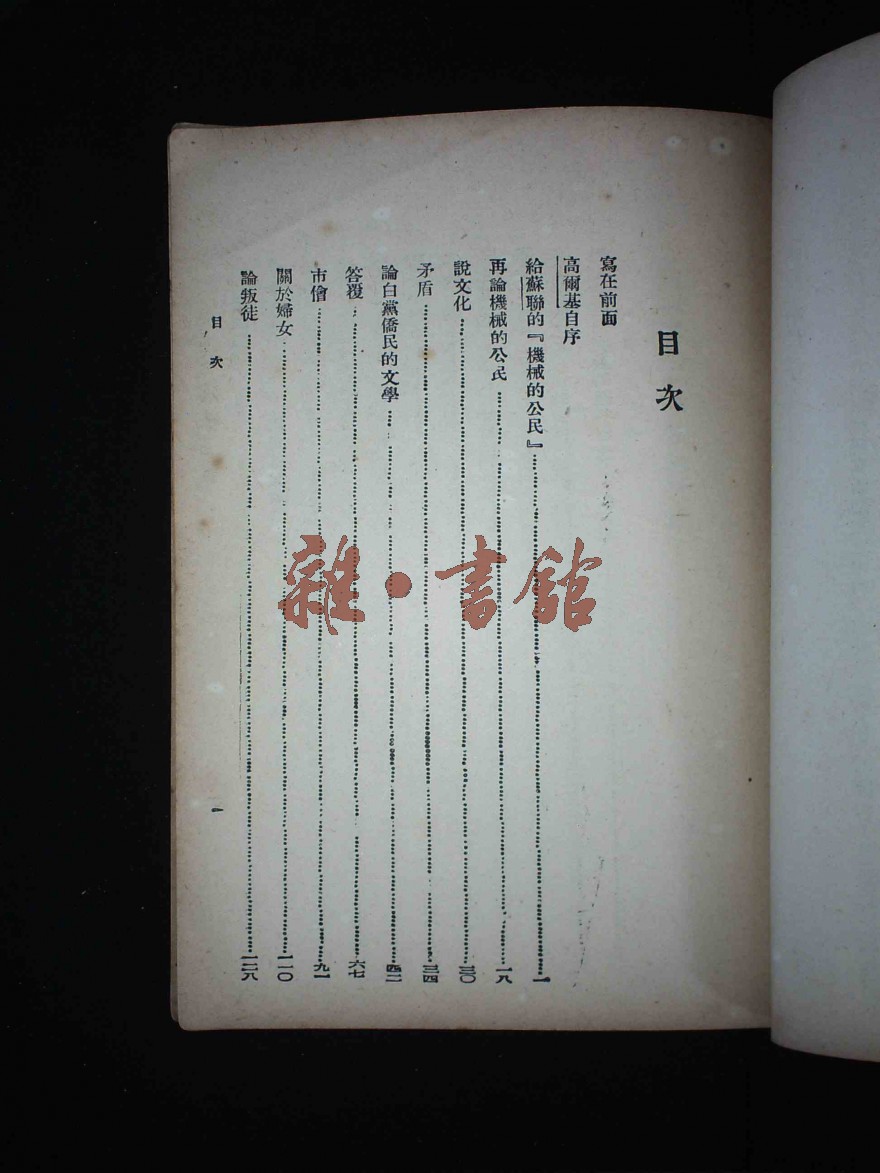 目次
寫在前面
高爾基自序
給蘇聯的『機械的公民』……一
再論機械的公民……一八
說文化……三〇
矛盾……三四
論白黨僑民的文學……四二
答覆……六七
市儈……九一
關於婦女……一一〇
論叛徒……一二八
目次 一
雜·書館